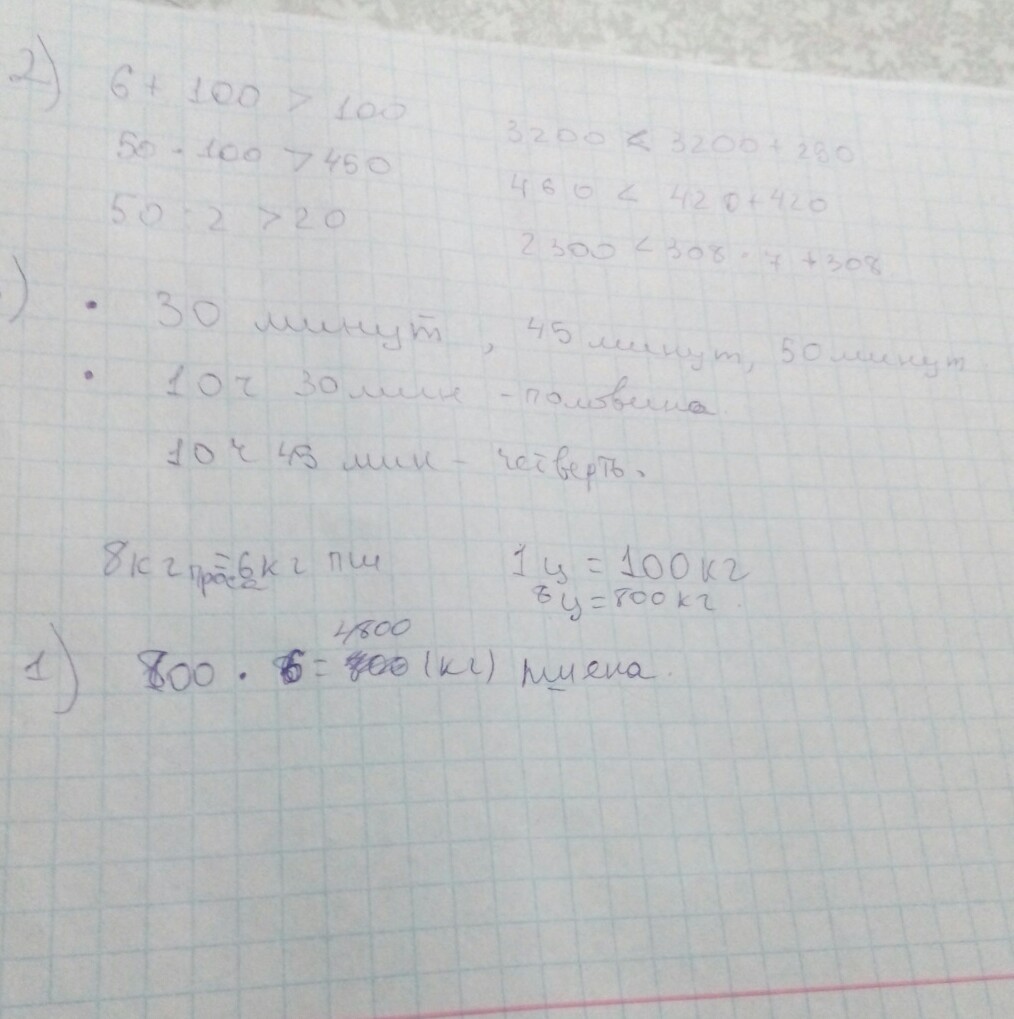 2) 6 + 100 > 100
50 · 100 > 450
50 : 2 > 20
3200 < 3200 + 280
460 < 420 + 420
2300 < 308 · 7 + 308
) • 30 минут, 45 минут, 50 минут
• 10 ч 30 мин - половина
10 ч 45 мин - четверть.
8 кг проса = 6 кг пш
1 ц = 100 кг
8 ц = 800 кг.
4800
1) 800 · 6 = (кг) пшена.